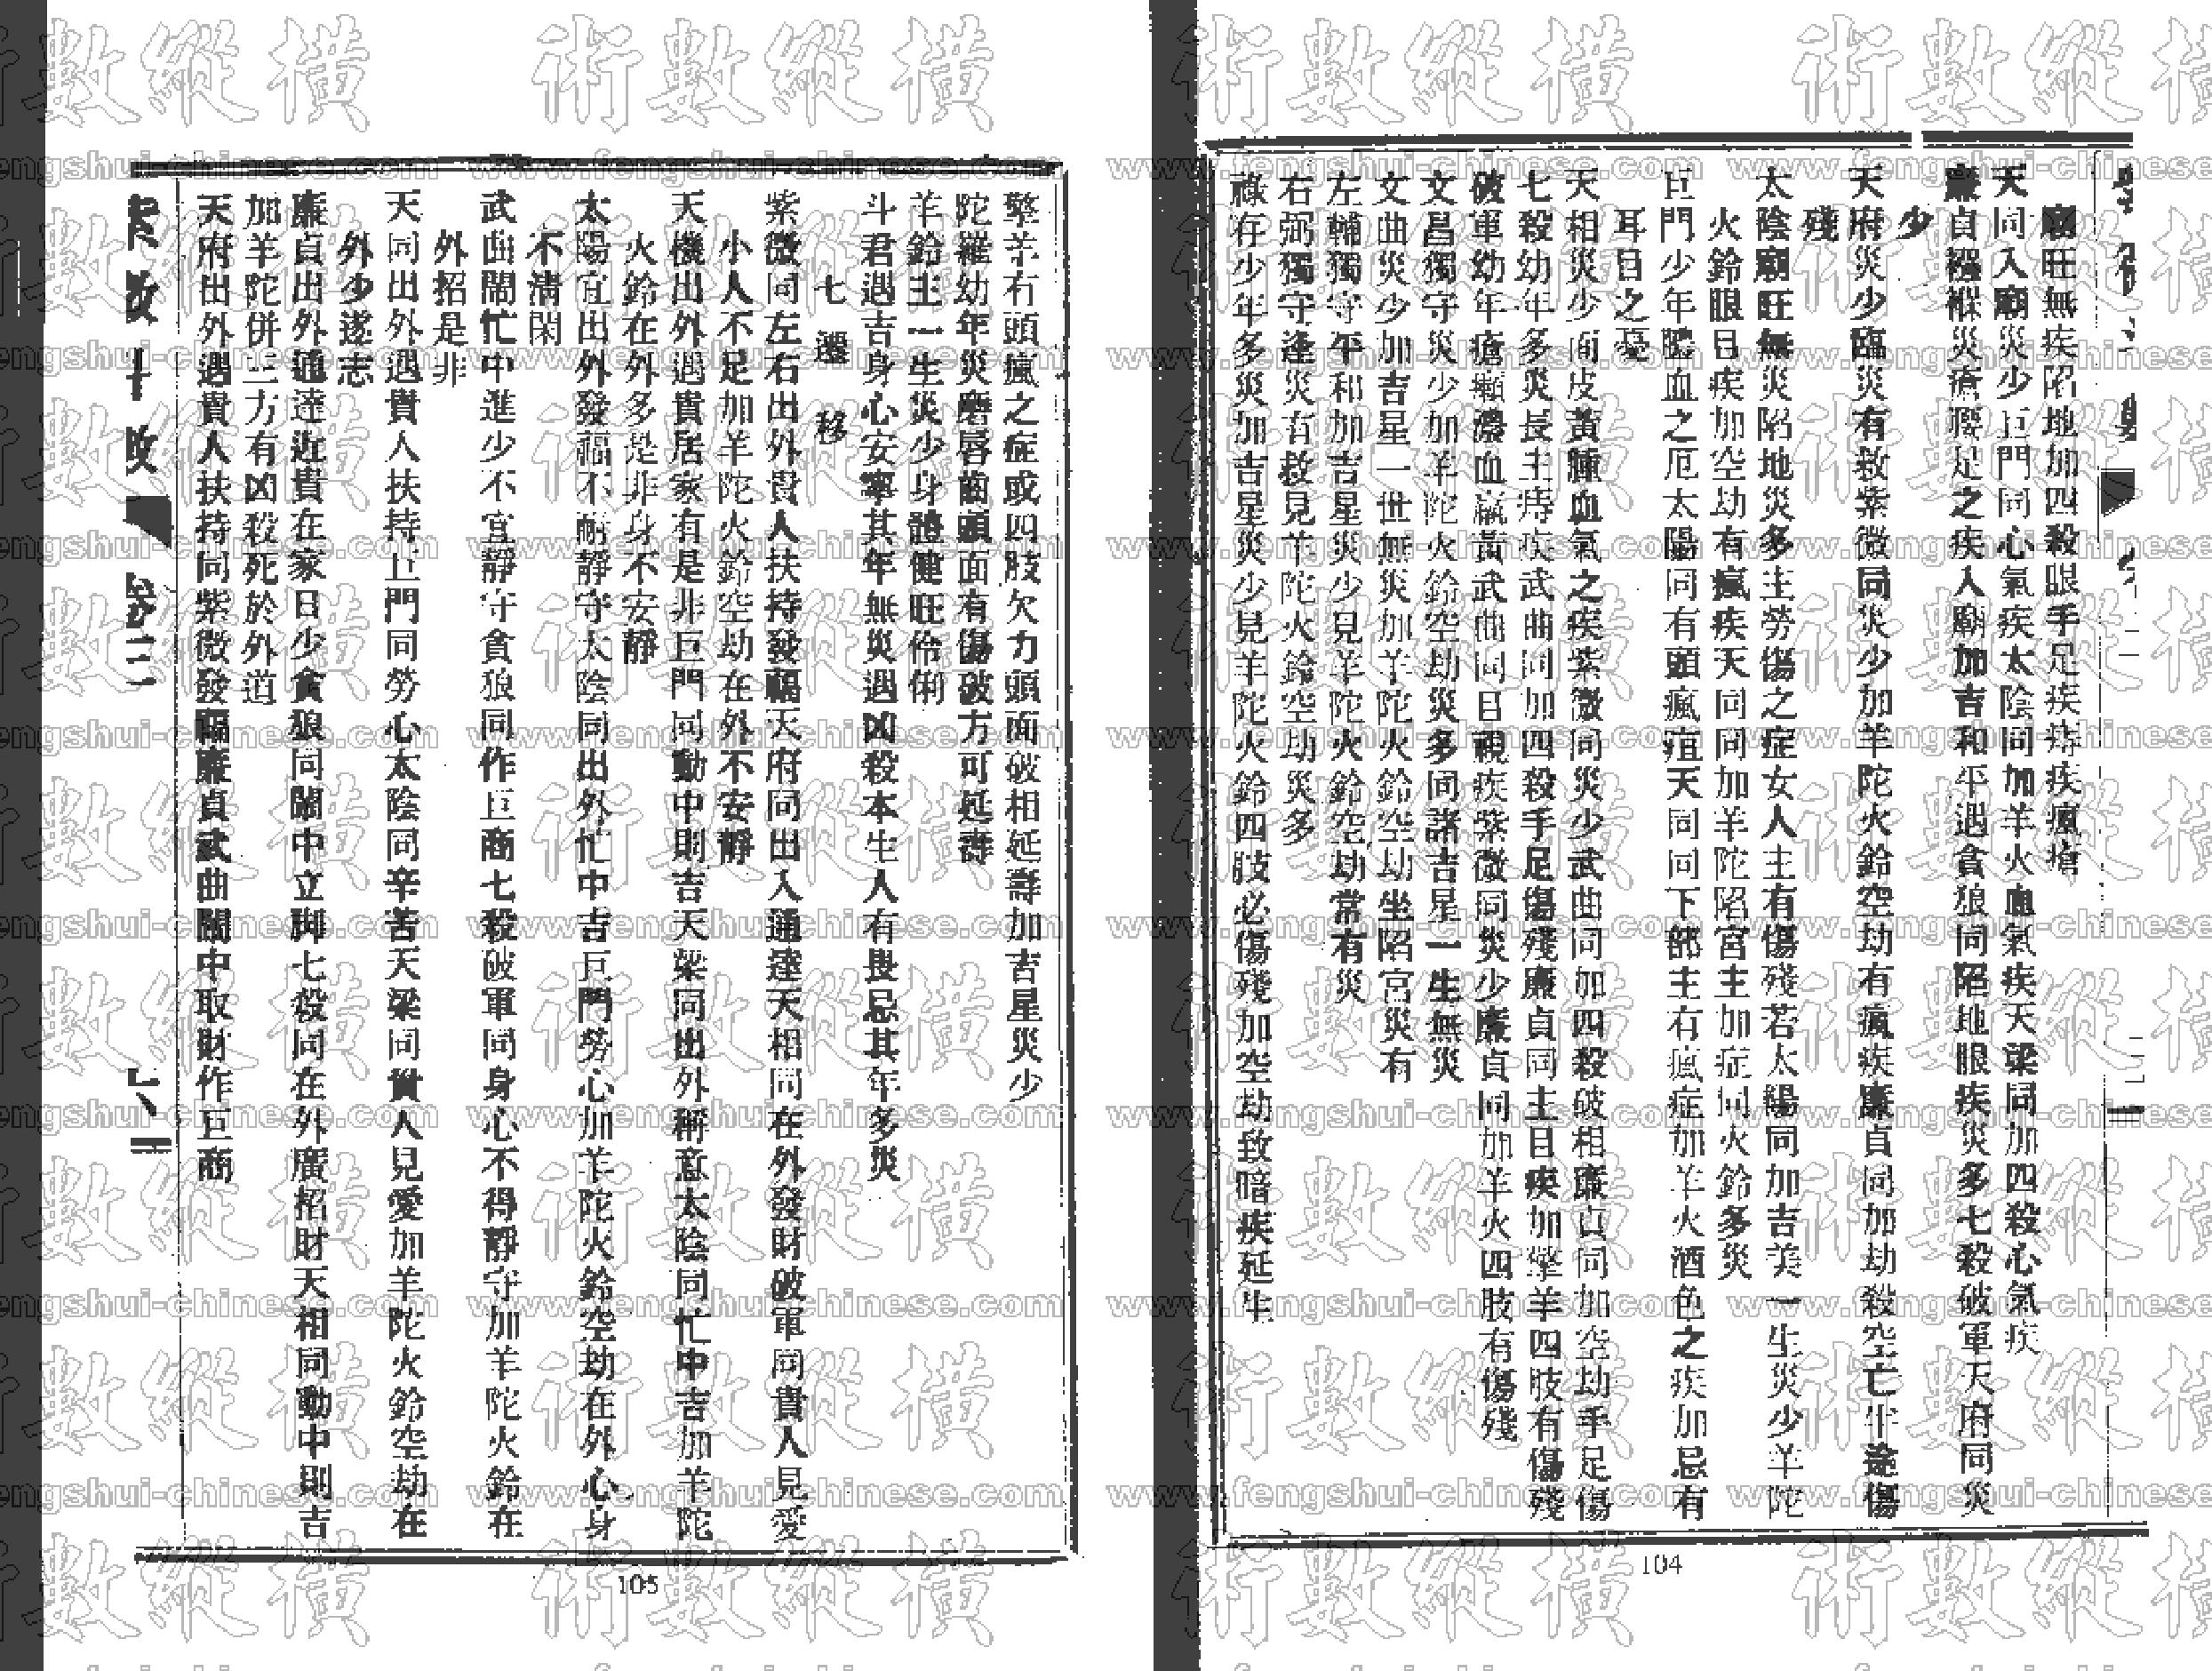 廟旺無疾陷地加四殺眼手足疾痔疾瘋瘡
天同入廟災少巨門同心氣疾太陰同加羊火血氣疾天梁同加四殺心氣疾
廉貞襁褓災瘡腰足之疾入廟加吉和平遇貪狼同陷地眼疾災多七殺破軍天府同災
少
天府災少臨災有救紫微同災少加羊陀火鈴空劫有瘋疾廉貞同加劫殺空亡半途傷
殘
太陰廟旺無災陷地災多主勞傷之症女人主有傷殘若太陽同加吉美一生災少羊陀
火鈴眼目疾加空劫有瘋疾天同同加羊陀陷宮主加症同火鈴多災
巨門少年膿血之厄太陽同有頭瘋疽天同同下部主有瘋症加羊火酒色之疾加忌有
耳目之憂
天相災少面皮黃腫血氣之疾紫微同災少武曲同加四殺破相廉貞同加空劫手足傷
七殺幼年多災長主痔疾武曲同加四殺手足傷殘廉貞同主目疾加擎羊四肢有傷殘
破軍幼年瘡癩濃血羸黃武曲同目視疾紫微同災少廉貞同加羊火四肢有傷殘
文昌獨守災少加羊陀火鈴空劫災多同諸吉星一生無災
文曲災少加吉星一世無災加羊陀火鈴空劫坐陷宮災有
左輔獨守平和加吉星災少見羊陀火鈴空劫常有災
右弼獨守逢災有救見羊陀火鈴空劫災多
祿存少年多災加吉星災少見羊陀火鈴四肢必傷殘加空劫致暗疾延生
104
擎羊有頭瘋之症或四肢欠力頭面破相延壽加吉星災少
陀羅幼年災磨唇齒頭面有傷破方可延壽
羊鈴主一生災少身體健旺伶俐
斗君遇吉身心安寧其年無災遇凶殺本生人有畏忌其年多災
七 遷 移
紫微同左右出外貴人扶持發福天府同出入通達天相同在外發財破軍同貴人見愛
小人不足加羊陀火鈴空劫在外不安靜
天機出外遇貴居家有是非巨門同動中則吉天梁同出外稱意太陰同忙中吉加羊陀
火鈴在外多是非身不安靜
太陽宜出外發福不耐靜守太陰同出外忙中吉巨門勞心加羊陀火鈴空劫在外心身
不清閑
武曲鬧忙中進少不宜靜守貪狼同作巨商七殺破軍同身心不得靜守加羊陀火鈴在
外招是非
天同出外遇貴人扶持巨門同勞心太陰同辛苦天梁同貴人見愛加羊陀火鈴空劫在
外少遂志
廉貞出外通達近貴在家日少貪狼同鬧中立脚七殺同在外廣招財天相同動中則吉
加羊陀併三方有凶殺死於外道
天府出外遇貴人扶持同紫微發福廉貞武曲鬧中取財作巨商
105